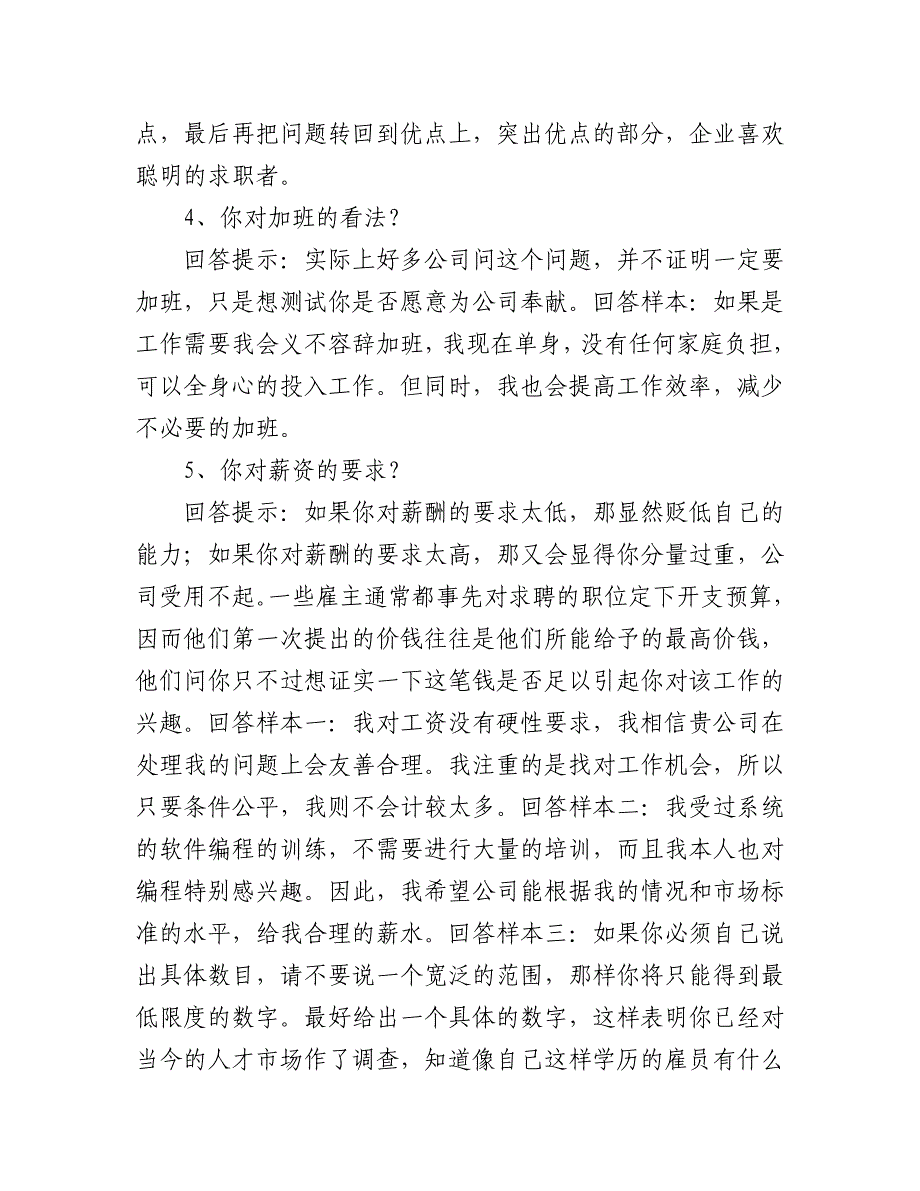 点，最后再把问题转回到优点上，突出优点的部分，企业喜欢
聪明的求职者。
4、你对加班的看法？
回答提示：实际上好多公司问这个问题，并不证明一定要
加班，只是想测试你是否愿意为公司奉献。回答样本：如果是
工作需要我会义不容辞加班，我现在单身，没有任何家庭负担，
可以全身心的投入工作。但同时，我也会提高工作效率，减少
不必要的加班。
5、你对薪资的要求？
回答提示：如果你对薪酬的要求太低，那显然贬低自己的
能力；如果你对薪酬的要求太高，那又会显得你分量过重，公
司受用不起。一些雇主通常都事先对求聘的职位定下开支预算，
因而他们第一次提出的价钱往往是他们所能给予的最高价钱，
他们问你只不过想证实一下这笔钱是否足以引起你对该工作的
兴趣。回答样本一：我对工资没有硬性要求，我相信贵公司在
处理我的问题上会友善合理。我注重的是找对工作机会，所以
只要条件公平，我则不会计较太多。回答样本二：我受过系统
的软件编程的训练，不需要进行大量的培训，而且我本人也对
编程特别感兴趣。因此，我希望公司能根据我的情况和市场标
准的水平，给我合理的薪水。回答样本三：如果你必须自己说
出具体数目，请不要说一个宽泛的范围，那样你将只能得到最
低限度的数字。最好给出一个具体的数字，这样表明你已经对
当今的人才市场作了调查，知道像自己这样学历的雇员有什么